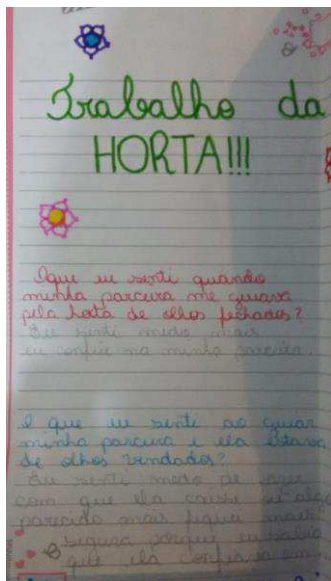 Trabalho da
HORTA!!!
O que eu senti quando
minha parceira me guiava
pela horta de olhos fechados?
Eu senti medo mais
eu confiei na minha parceira.
O que eu senti ao guiar
minha parceira e ela estava
de olhos vendados?
Eu senti medo de fazer
com que ela caísse ou algo
parecido mais fiquei mais
segura porque eu sabia
que ela confiava em